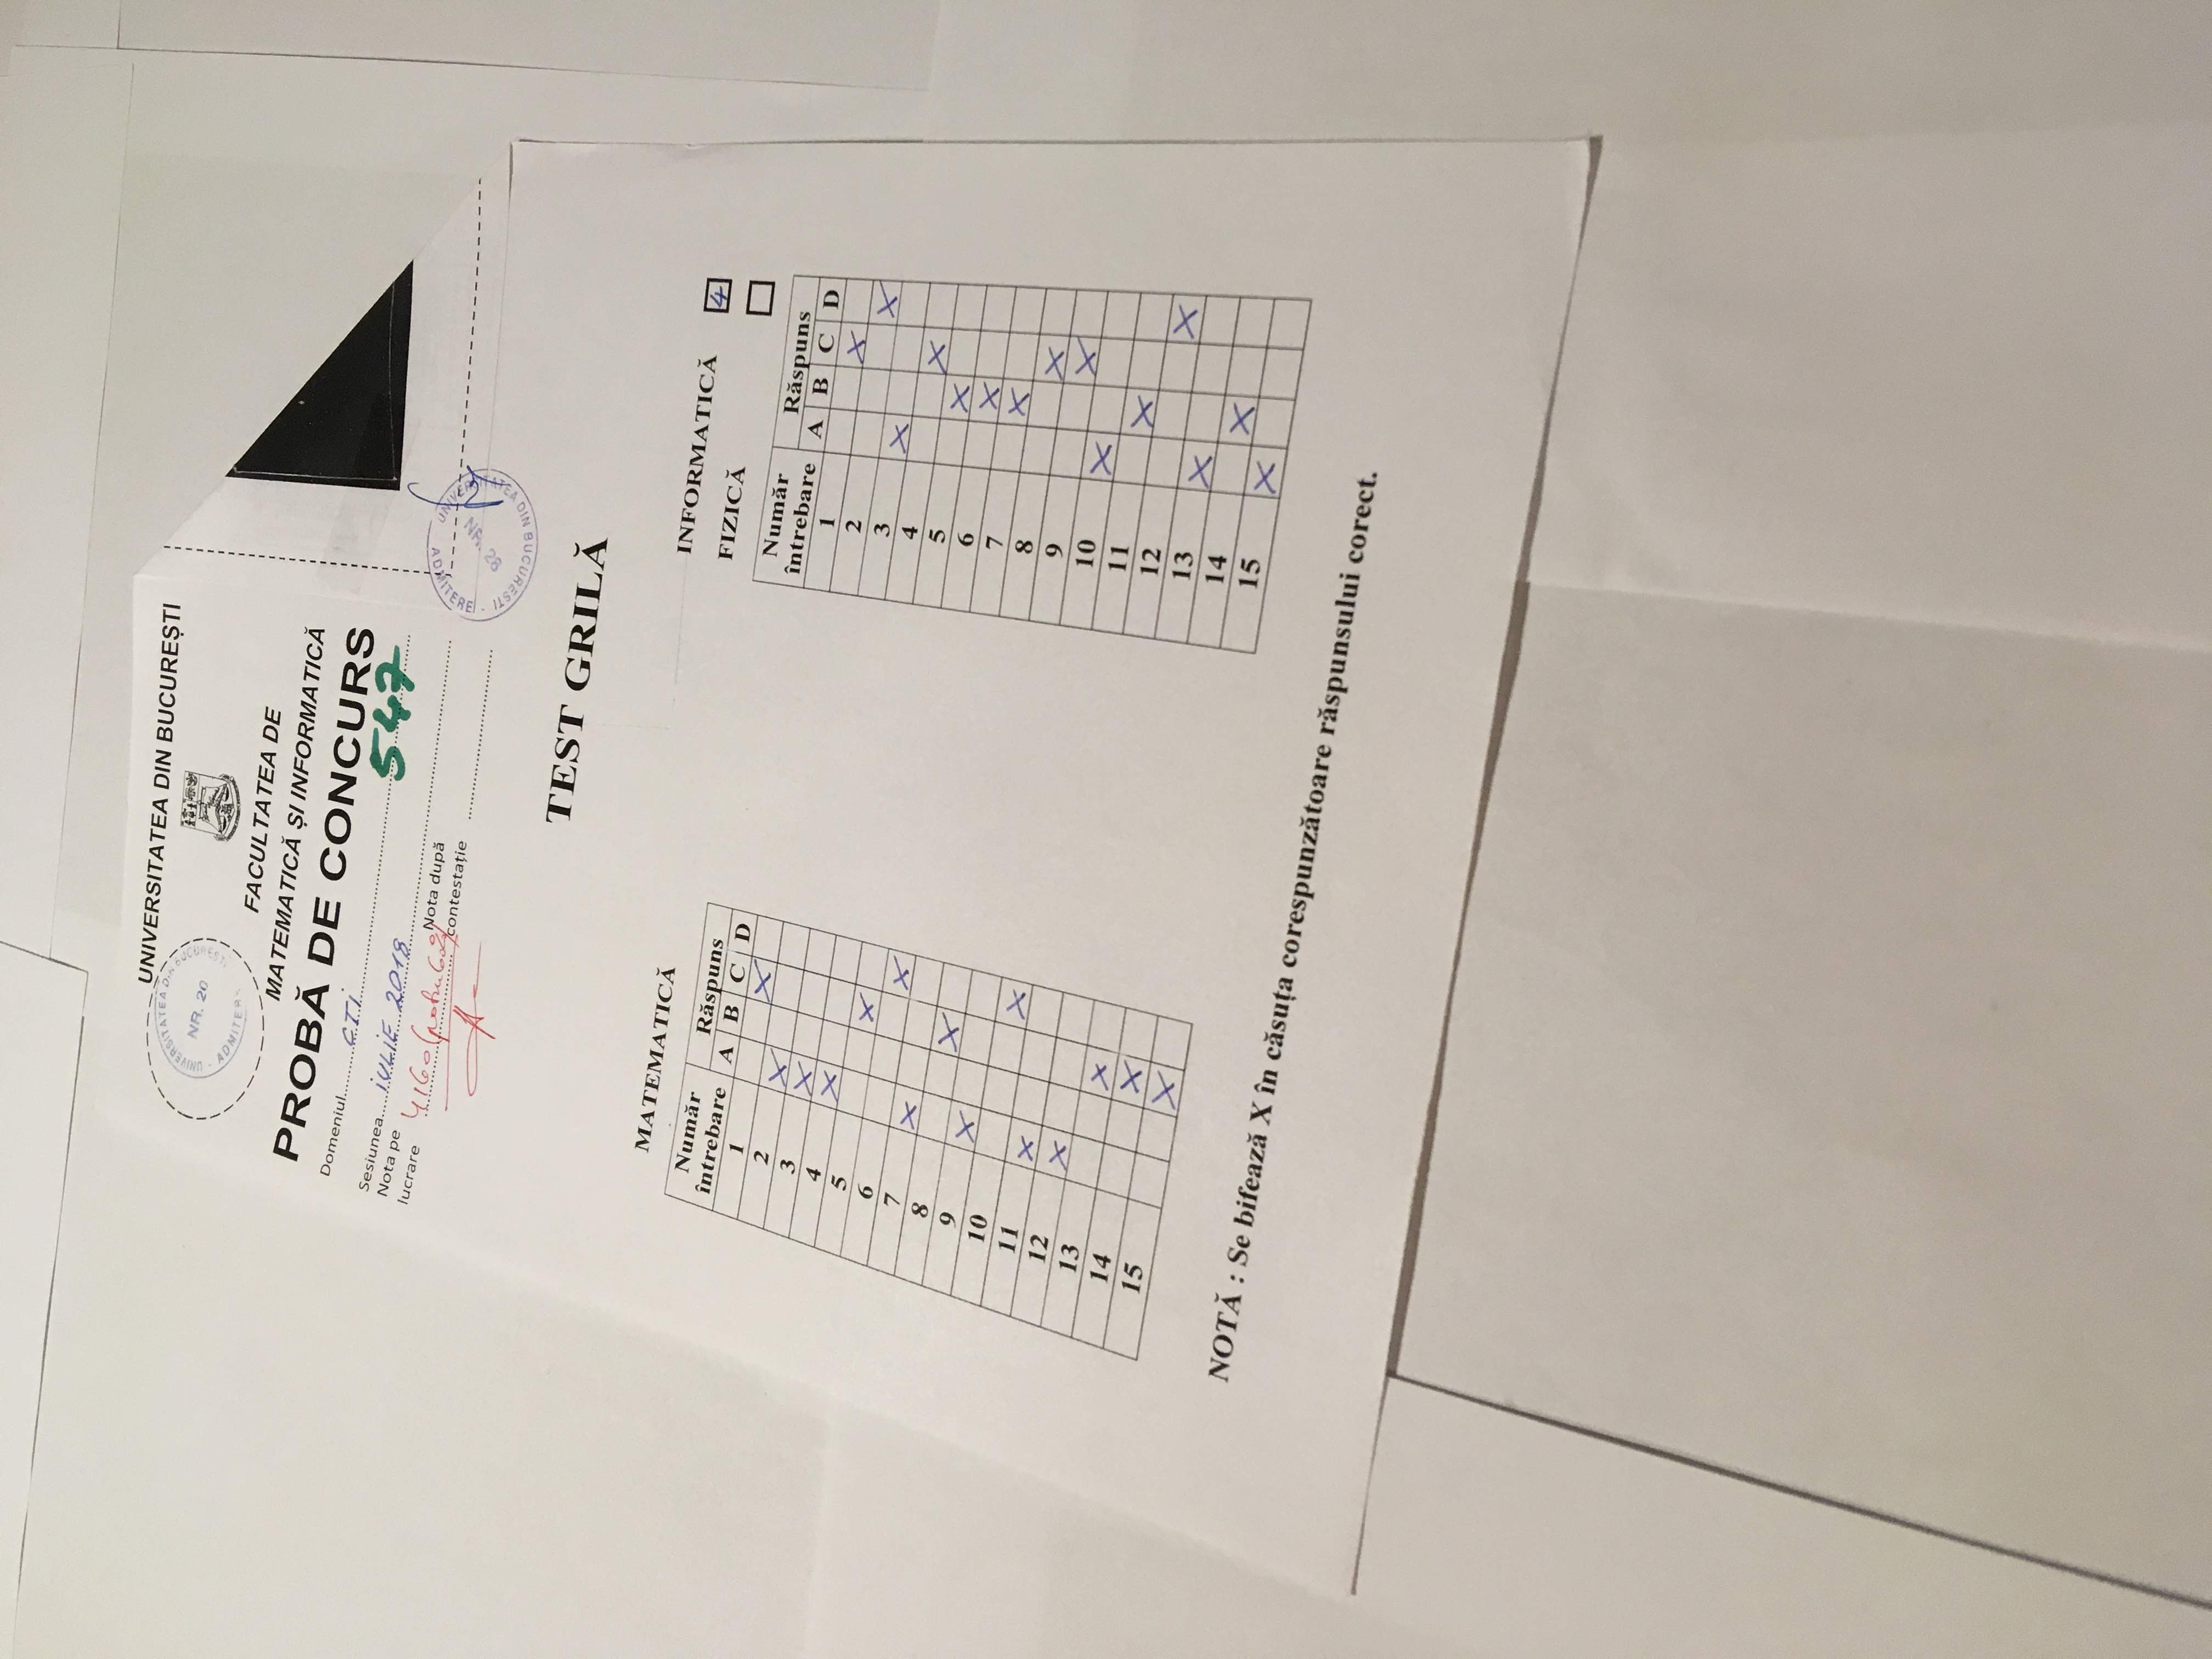 UNIVERSITATEA DIN BUCUREȘTI
UNIVERSITATEA DIN BUCUREȘTI
NR. 20
ADMITERE
FACULTATEA DE
MATEMATICĂ ȘI INFORMATICĂ
PROBĂ DE CONCURS
Domeniul CTI
547
Sesiunea IULIE 2018
Nota pe lucrare 4,60 Nota după contestație
UNIVERSITATEA DIN BUCURESTI
NR. 28
ADMITERE
TEST GRILĂ
MATEMATICĂ
Număr întrebare Răspuns
A B C D
1 X
2 X
3 X
4 X
5 X
6 X
7 X
8 X
9 X
10 X
11 X
12 X
13 X
14 X
15 X
INFORMATICĂ 4
FIZICĂ
Număr întrebare Răspuns
A B C D
1 X
2 X
3 X
4 X
5 X
6 X
7 X
8 X
9 X
10 X
11 X
12 X
13 X
14 X
15 X
NOTĂ : Se bifează X în căsuța corespunzătoare răspunsului corect.